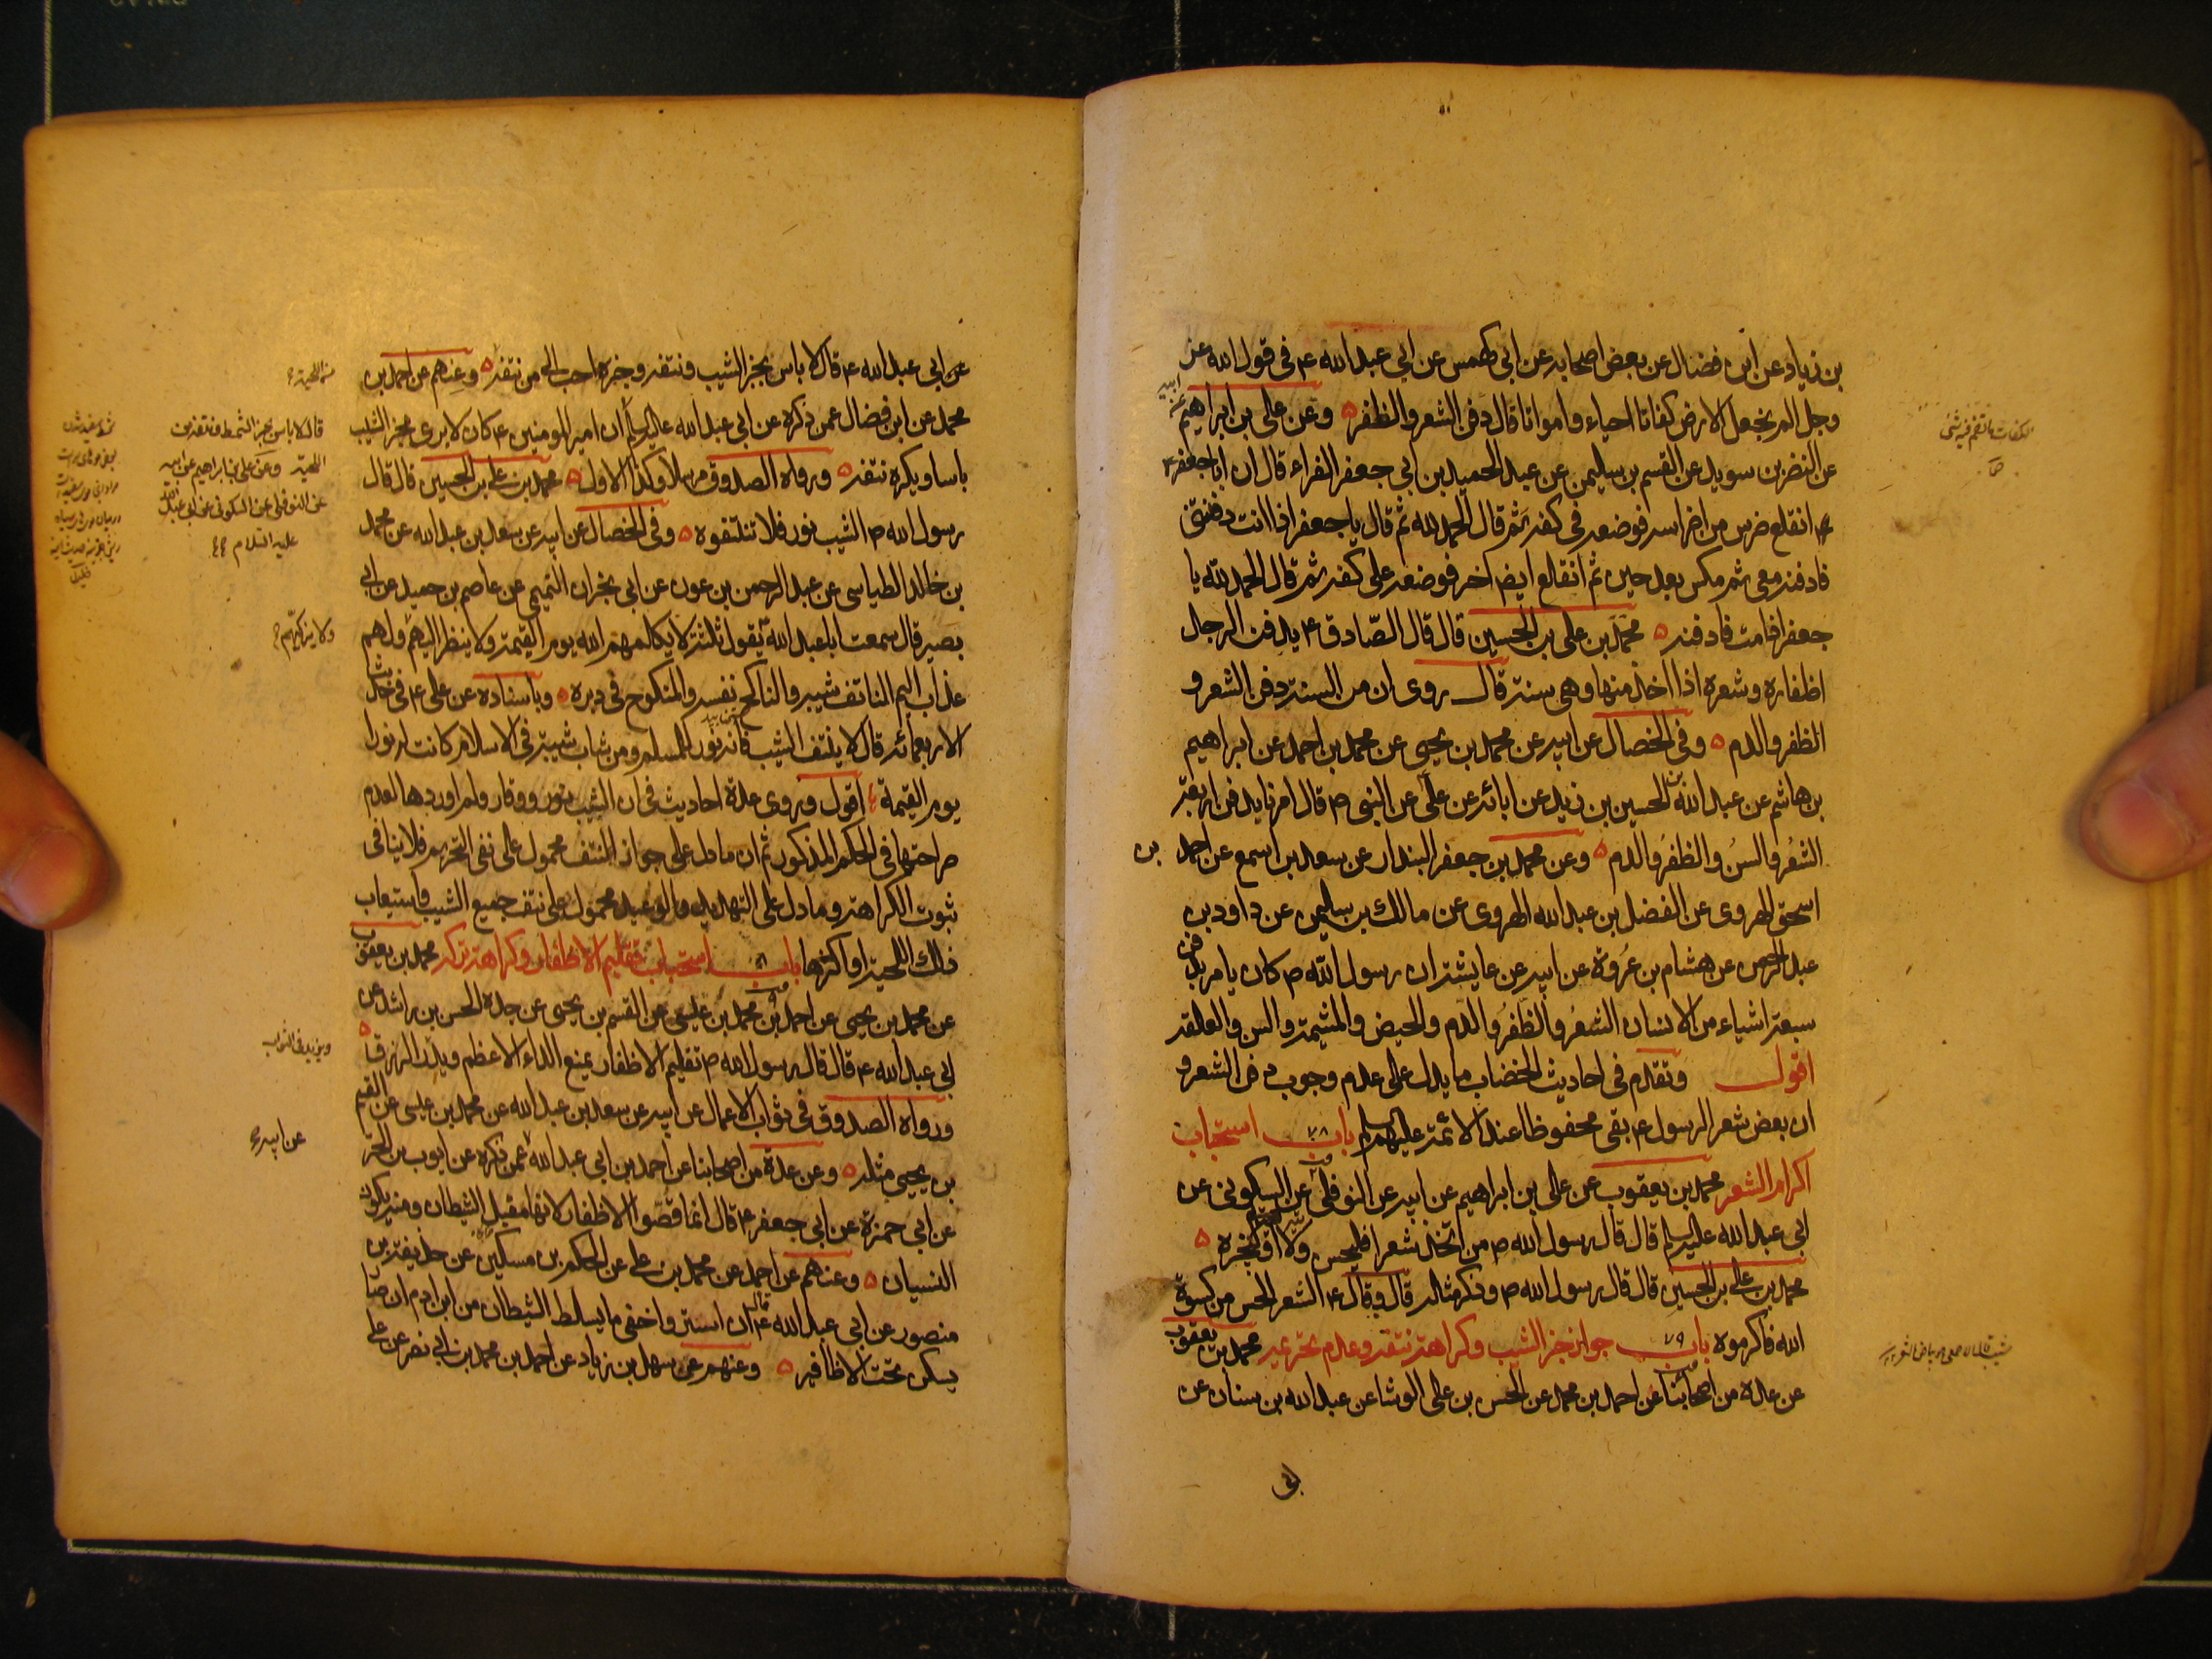 بن زياد عن ابن فضال عن بعض اصحابه عن ابي كهمس عن ابي عبد الله ع في قول الله عز
وجل الم نجعل الارض كفاتا احياء وامواتا قال دفن الشعر والظفر ه وعن علي بن ابراهيم عن ابيه
عن النضر بن سويد عن القسم بن سليمن عن عبد الحميد بن ابي جعفر الفراء قال ان ابا جعفر
ع انقلع ضرس من اضراسه فوضعه في كفه ثم قال الحمد لله ثم قال يا جعفر اذا انت دفنتني
فادفنه معي ثم مكث بعد حين ثم انقلع ايضا اخر فوضعه على كفه ثم قال الحمد لله يا
جعفر اذا مت فادفنه ه محمد بن علي بن الحسين قال قال الصادق ع يدفن الرجل
اظفاره وشعره اذا اخذ منها وهي سنة قال روى ان من السنة دفن الشعر و
الظفر والدم ه وفي الخصال عن ابيه عن محمد بن يحيى عن محمد بن احمد عن ابراهيم
بن هاشم عن عبد الله بن الحسين بن زيد عن ابائه عن علي عن النبي ص قال امرنا بدفن اربعة
الشعر والسن والظفر والدم ه وعن محمد بن جعفر البندار عن سعد بن اسمع عن احمد بن
اسحق الهروي عن الفضل بن عبد الله الهروي عن مالك بن سليمن عن داود بن
عبد الرحمن عن هشام بن عروة عن ابيه عن عايشة ان رسول الله ص كان يامر بدفن
سبعة اشياء من الانسان الشعر والظفر والدم والحيض والمشيمة والسن والعلقة
اقول وتقدم في احاديث الخضاب ما يدل على عدم وجوب دفن الشعر و
ان بعض شعر الرسول ع بقي محفوظا عند الائمة عليهم السلم باب ٧٨ استحباب
اكرام الشعر محمد بن يعقوب عن علي بن ابراهيم عن ابيه عن النوفلي عن السكوني عن
ابي عبد الله عليه السلم قال قال رسول الله ص من اتخذ شعرا فليحسن ولايته او ليجزه ه
محمد بن علي بن الحسين قال قال رسول الله ص وذكر مثله قال وقال ع الشعر الحسن من كسوة
الله فاكرموه باب ٧٩ جواز جز الشيب وكراهة نتفه وعدم تحريمه محمد بن يعقوب
عن عدة من اصحابنا عن احمد بن محمد عن الحسن بن علي الوشا عن عبد الله بن سنان عن
عن ابي عبد الله ع قال لا باس بجز الشيب ونتفه وجزه احب الي من نتفه ه وعنهم عن احمد بن
محمد عن ابن فضال عمن ذكره عن ابي عبد الله عليه السلم ان امير المومنين ع كان لا يرى بجز الشيب
باسا ويكره نتفه ه ورواه الصدوق مرسلا وكذا الاول ه محمد بن علي بن الحسين قال قال
رسول الله ص الشيب نور فلا تنتفوه ه وفي الخصال عن ابيه عن سعد بن عبد الله عن محمد
بن خالد الطيالسي عن عبد الرحمن بن عون عن ابي نجران التميمي عن عاصم بن حميد عن ابي
بصير قال سمعت ابا عبد الله يقول ثلثة لا يكلمهم الله يوم القيمة ولا ينظر اليهم ولهم
عذاب اليم الناتف شيبه والناكح نفسه والمنكوح في دبره ه وباسناده عن علي ع في حديث
الاربعمائة قال لا ينتف الشيب فانه نور للمسلم ومن شاب شيبة في الاسلام كانت له نورا
يوم القيمة اقول وروى عدة احاديث في ان الشيب نور ووقار ولم اوردها لعدم
صراحتها في الحكم المذكور ثم ان ما دل على جواز النتف محمول على نفي التحريم فلا ينافي
ثبوت الكراهة وما دل على التهديد والوعيد محمول على نتف جميع الشيب واستيعاب
ذلك اللحية او اكثرها باب استحباب تقليم الاظفار وكراهة تركه محمد بن يعقوب
عن محمد بن يحيى عن احمد بن محمد بن عيسى عن القسم بن يحيى عن جده الحسن بن راشد عن
ابي عبد الله ع قال قال رسول الله ص تقليم الاظفار يمنع الداء الاعظم ويدر الرزق ه
ورواه الصدوق في ثواب الاعمال عن ابيه عن سعد بن عبد الله عن محمد بن عيسى عن القسم
بن يحيى مثله ه وعن عدة من اصحابنا عن احمد بن ابي عبد الله عمن ذكره عن ايوب بن الحر
عن ابي حمزة عن ابي جعفر ع قال انما قصوا الاظفار لانها مقيل الشيطان ومنه يكون
النسيان ه وعنهم عن احمد عن محمد بن علي عن الحكم بن مسكين عن حذيفة بن
منصور عن ابي عبد الله ع قال ان استر واخفى ما يسلط الشيطان من ابن ادم ان صار
يسكن تحت الاظافير ه وعنهم عن سهل بن زياد عن احمد بن محمد بن ابي نصر عن علي
قال لا باس بجز الشمط ونتفه من
اللحية وعن علي بن ابراهيم عن ابيه
عن النوفلي عن السكوني عن ابي عبد الله
عليه السلام
ولا يزكيهم
عن ابيه